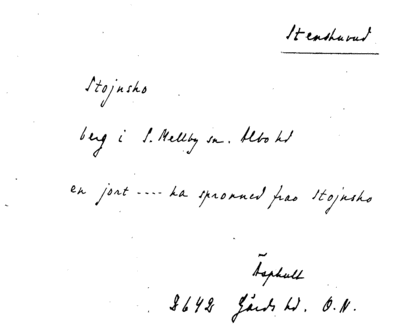 Stenshuvud
Stojnsho
berg i S. Mellby sn. Albo hd
en jort ---- ha spronned frao Stojnsho
Äsphult
2642 Gärds hd. Ö.N.